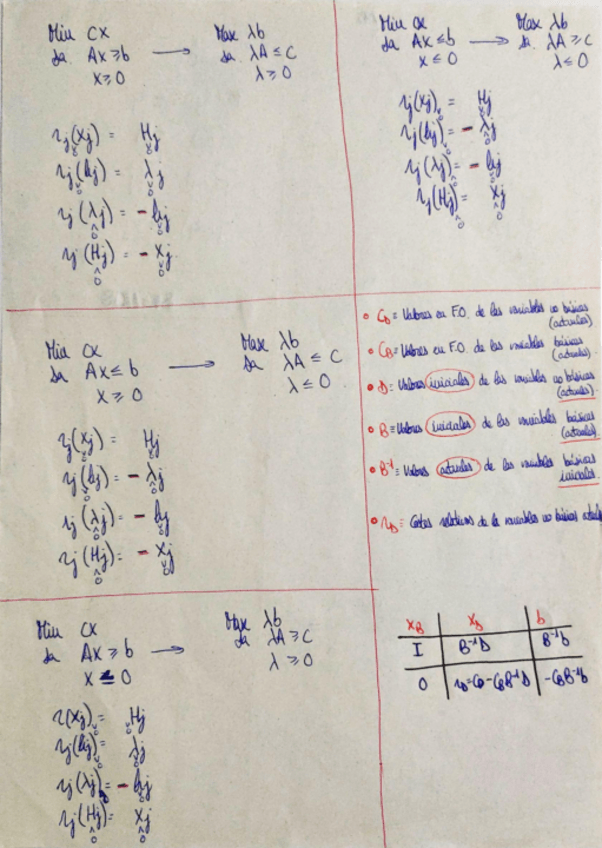 Min cx → Max λb
sa Ax ≥ b sa. λA ≤ c
x ≥ 0 λ ≥ 0
rj(xj) = Hj
rj(hj) = λj
rj(λj) = - hj
rj(Hj) = - xj
Min cx → Max λb
sa Ax ≤ b sa. λA ≥ c
x ≤ 0 λ ≤ 0
rj(xj) = Hj
rj(hj) = - λj
rj(λj) = - hj
rj(Hj) = xj
Min cx → Max λb
sa Ax ≤ b sa λA ≤ c
x ≥ 0 λ ≤ 0
rj(xj) = Hj
rj(hj) = - λj
rj(λj) = - hj
rj(Hj) = - xj
• CD = Valores en F.O. de las variables no básicas (actuales)
• CB = Valores en F.O. de las variables básicas (actuales).
• D = Valores iniciales de las variables no básicas (actuales).
• B = Valores iniciales de las variables básicas (actuales)
• B⁻¹ = Valores actuales de las variables básicas iniciales.
• rD = Costes relativos de la variables no básicas
Min cx → Max λb
sa Ax ≥ b sa λA ≥ c
x ≤ 0 λ ≥ 0
r(xj) = Hj
rj(hj) = λj
rj(λj) = - hj
rj(Hj) = xj
xB xD b
I B⁻¹D B⁻¹b
0 rD=CD-CBB⁻¹D -CBB⁻¹b